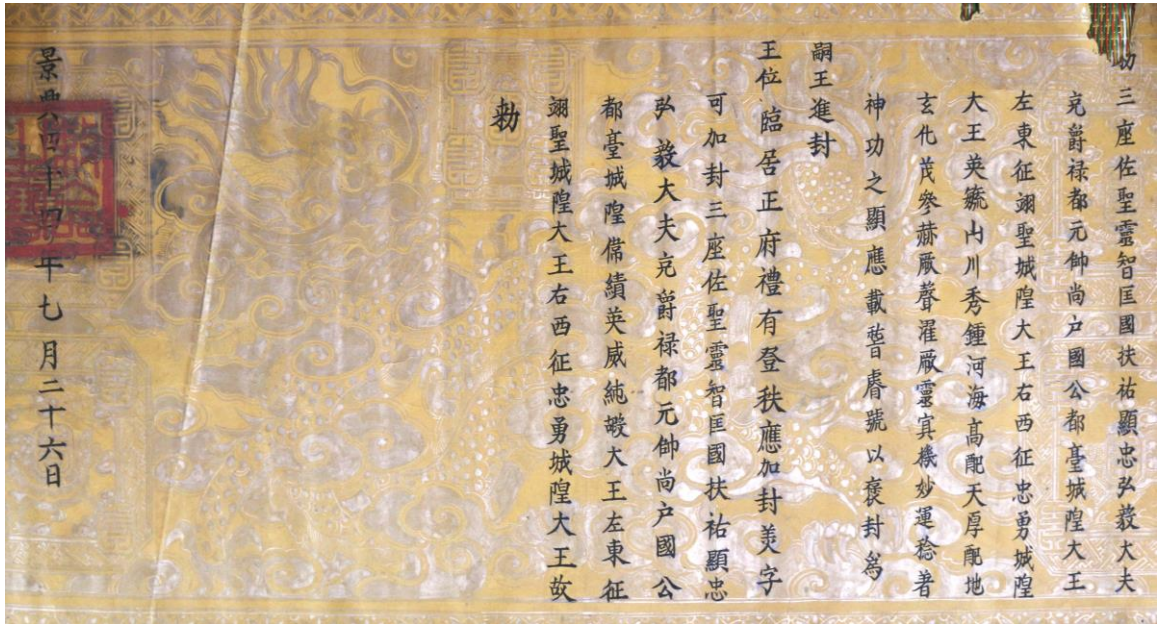 敕三座佐聖靈智匡國扶祐顯忠弘毅大夫
克爵禄都元帥尚户國公都臺城隍大王
左東征翊聖城隍大王右西征忠勇城隍
大王英毓山川秀鍾河海高配天厚配地
玄化茂參赫厥聲濯厥靈寘機妙運稔著
神功之顯應載晉睿號以褒封爲
嗣王進封
王位臨居正府禮有登秩應加封美字
可加封三座佐聖靈智匡國扶祐顯忠
弘毅大夫克爵禄都元帥尚户國公
都臺城隍偉績英威純嘏大王左東征
翊聖城隍大王右西征忠勇城隍大王故
勑
景興四十四年七月二十六日